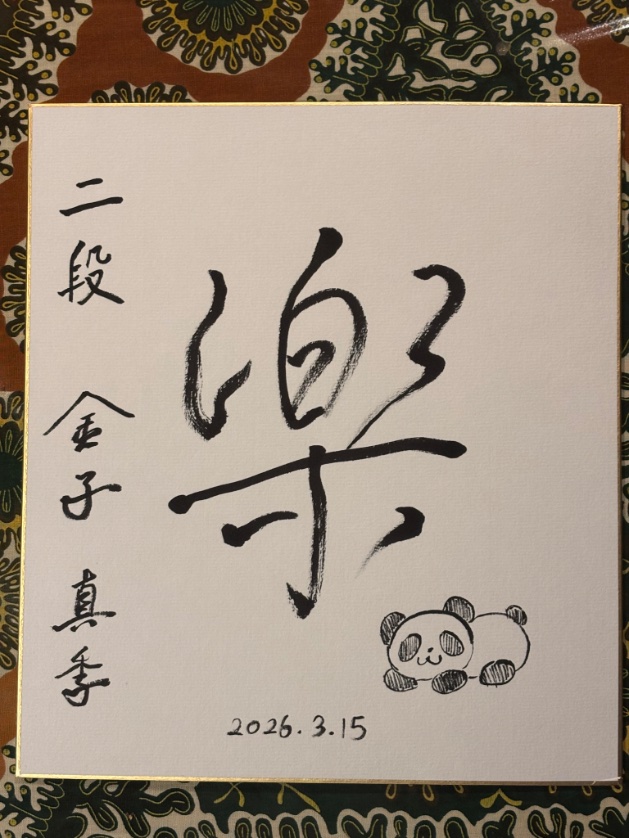 楽
二段 金子 真季
2026.3.15